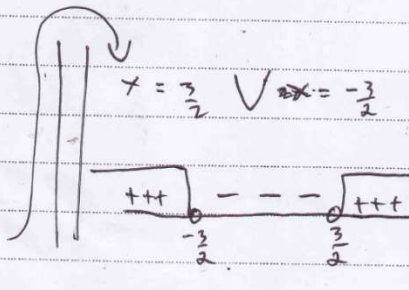 x = 3/2 V x = -3/2
+++ - - - +++
-3/2 3/2